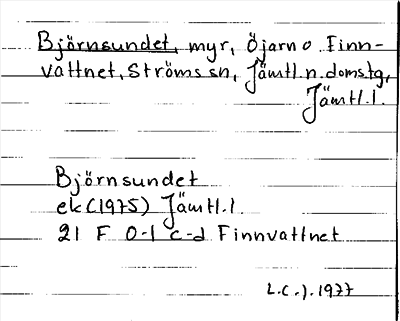 Björnsundet, myr, Öjarn o. Finn-
vattnet, Ströms sn, Jämtl.n.domstg,
Jämtl.l.
Björnsundet
ek (1975) Jämtl.l.
21 F 0-1 c-d Finnvattnet
L.C.J. 1977